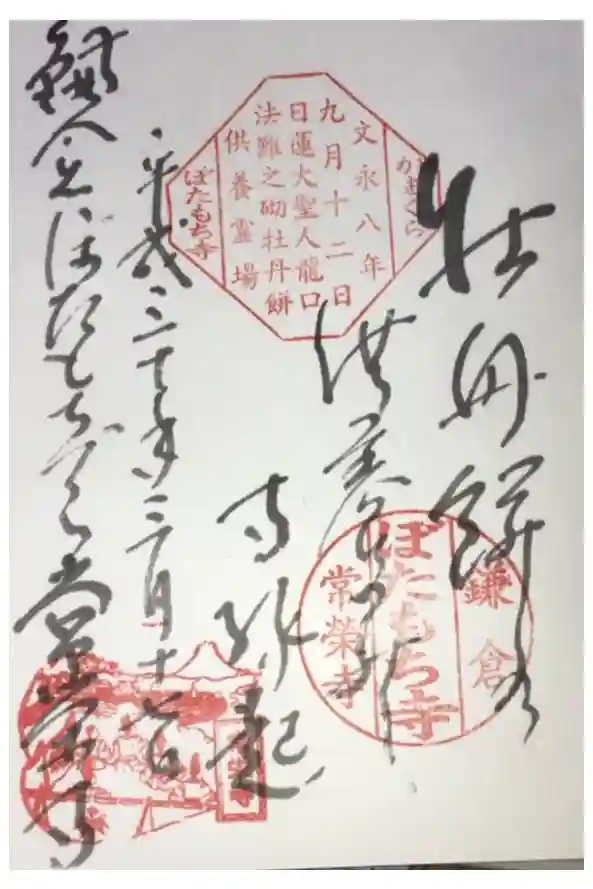 牡丹餅
供養
寺縁起
平成三十年三月十七日
鎌倉ぼたもちでら常栄寺
かまくら
文永八年
九月十二日
日蓮大聖人龍口
法難之砌牡丹餅
供養霊場
ぼたもち寺
鎌倉
ぼたもち寺
常榮寺